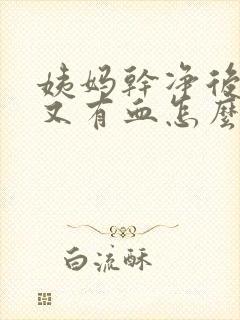 姨妈幹净後
又有血怎麼
白流酥